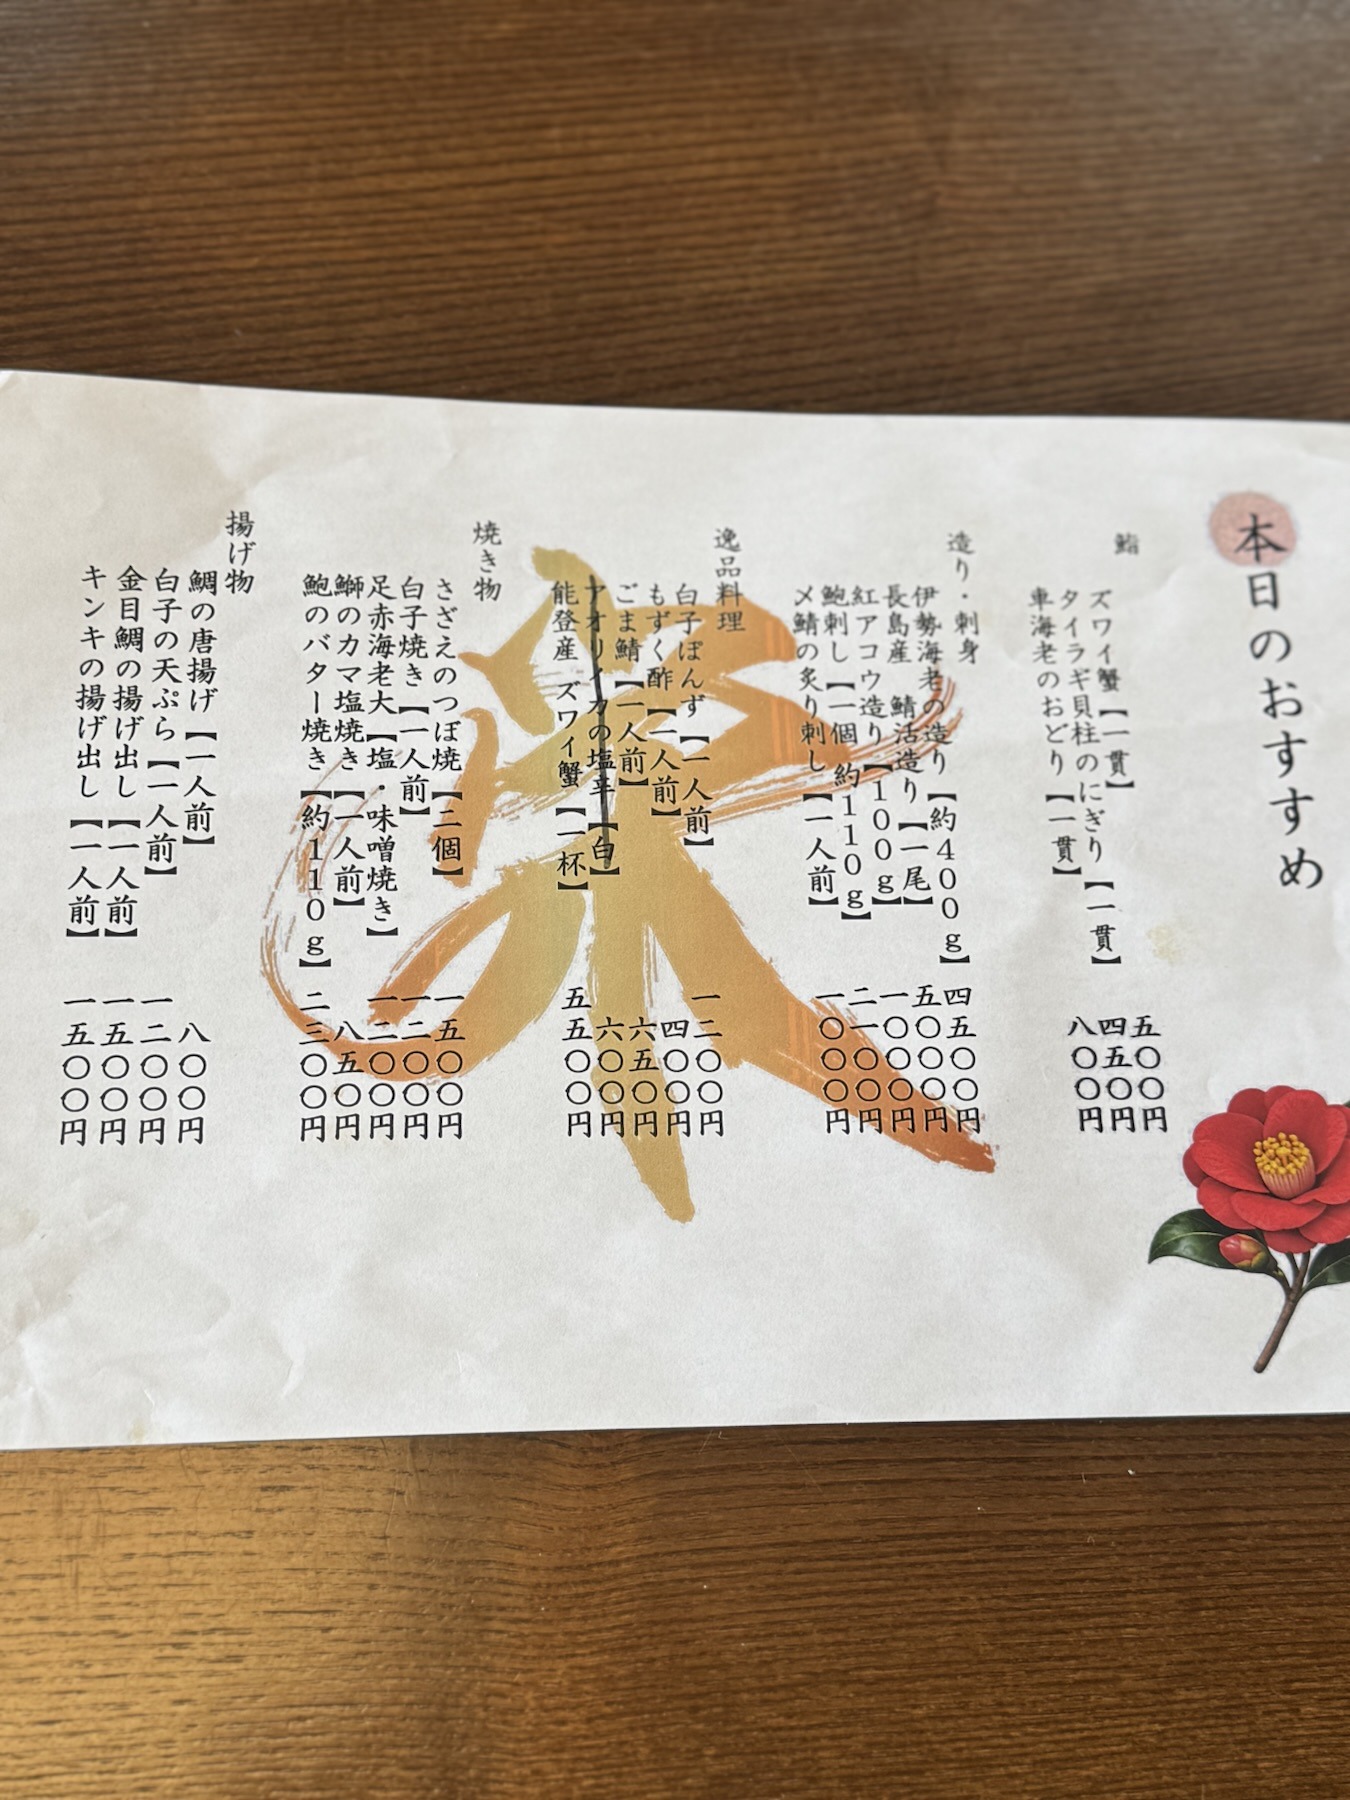 本日のおすすめ
鮨
ズワイ蟹【一貫】 五〇〇円
タイラギ貝柱のにぎり【一貫】 四五〇円
車海老のおどり【一貫】 八〇〇円
造り・刺身
伊勢海老の造り【約４００ｇ】 四五〇〇円
長島産 鯖活造り【一尾】 五〇〇〇円
紅アコウ造り【１００ｇ】 一〇〇〇円
鮑刺し【一個 約１１０ｇ】 二一〇〇円
〆鯖の炙り刺し【一人前】 一〇〇〇円
逸品料理
白子ぽんず【一人前】 一二〇〇円
もずく酢【一人前】 四〇〇円
ごま鯖【一人前】 六五〇円
アオリイカの塩辛【白】 六〇〇円
能登産 ズワイ蟹【一杯】 五五〇〇円
焼き物
さざえのつぼ焼【二個】 一五〇〇円
白子焼き【一人前】 一二〇〇円
足赤海老大【塩・味噌焼き】 一二〇〇円
鰤のカマ塩焼き【一人前】 八五〇円
鮑のバター焼き【約１１０ｇ】 二三〇〇円
揚げ物
鯛の唐揚げ【一人前】 八〇〇円
白子の天ぷら【一人前】 一二〇〇円
金目鯛の揚げ出し【一人前】 一五〇〇円
キンキの揚げ出し【一人前】 一五〇〇円